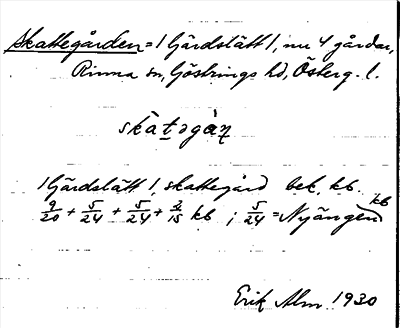 Skattegården = 1 Gärdslätt 1, nu 4 gårdar,
Rinna sn, Göstrings hd, Österg. l.
skàtəgàɳ
1 Gärdslätt 1, skattegård bek. kb.
9/20 + 5/24 + 5/24 + 2/15 kb ; 5/24 = Nyängen kb
Erik Alm 1930